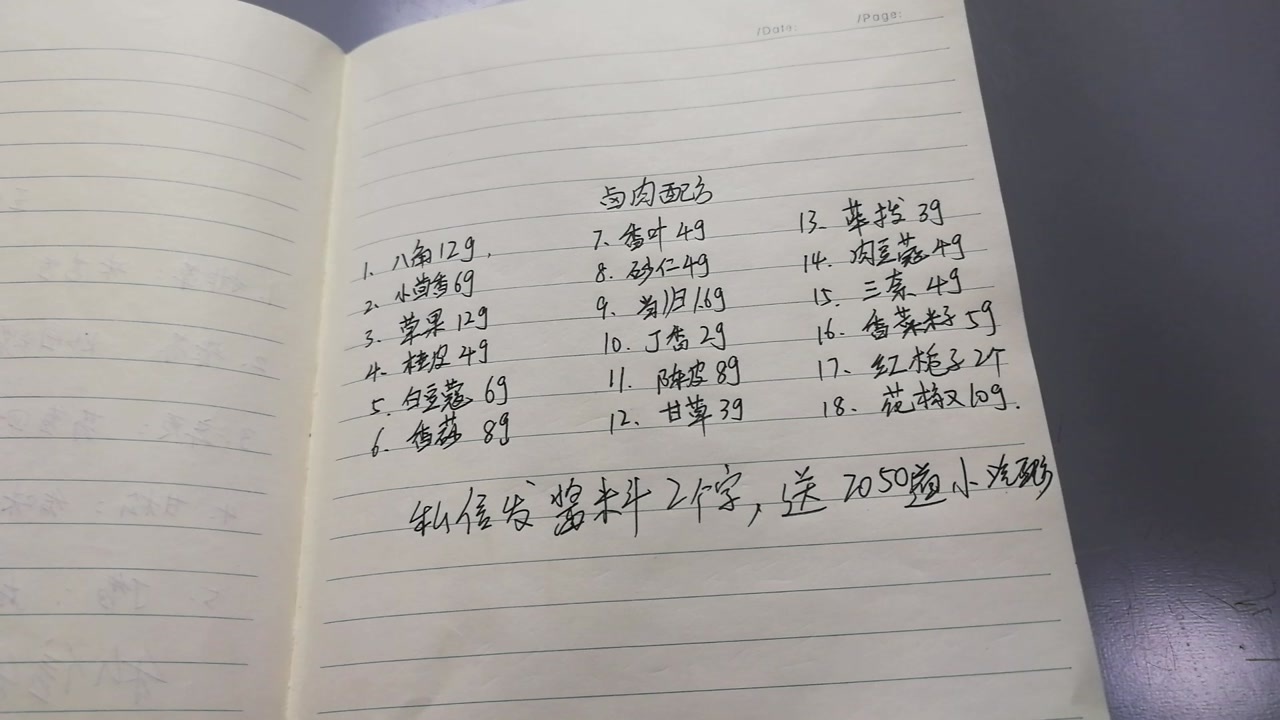 /Date:
/Page:
卤肉配方
1. 八角12g.
2. 小茴香6g
3. 草果12g
4. 桂皮 4g
5. 白豆蔻 6g
6. 香蒜 8g
7. 香叶 4g
8. 砂仁4g
9. 当归1.6g
10. 丁香 2g
11. 陈皮 8g
12. 甘草 3g
13. 荜拨 3g
14. 肉豆蔻 4g
15. 三奈 4g
16. 香菜籽 5g
17. 红栀子 2个
18. 花椒10g.
私信发酱料2个字,送2050道小吃配方